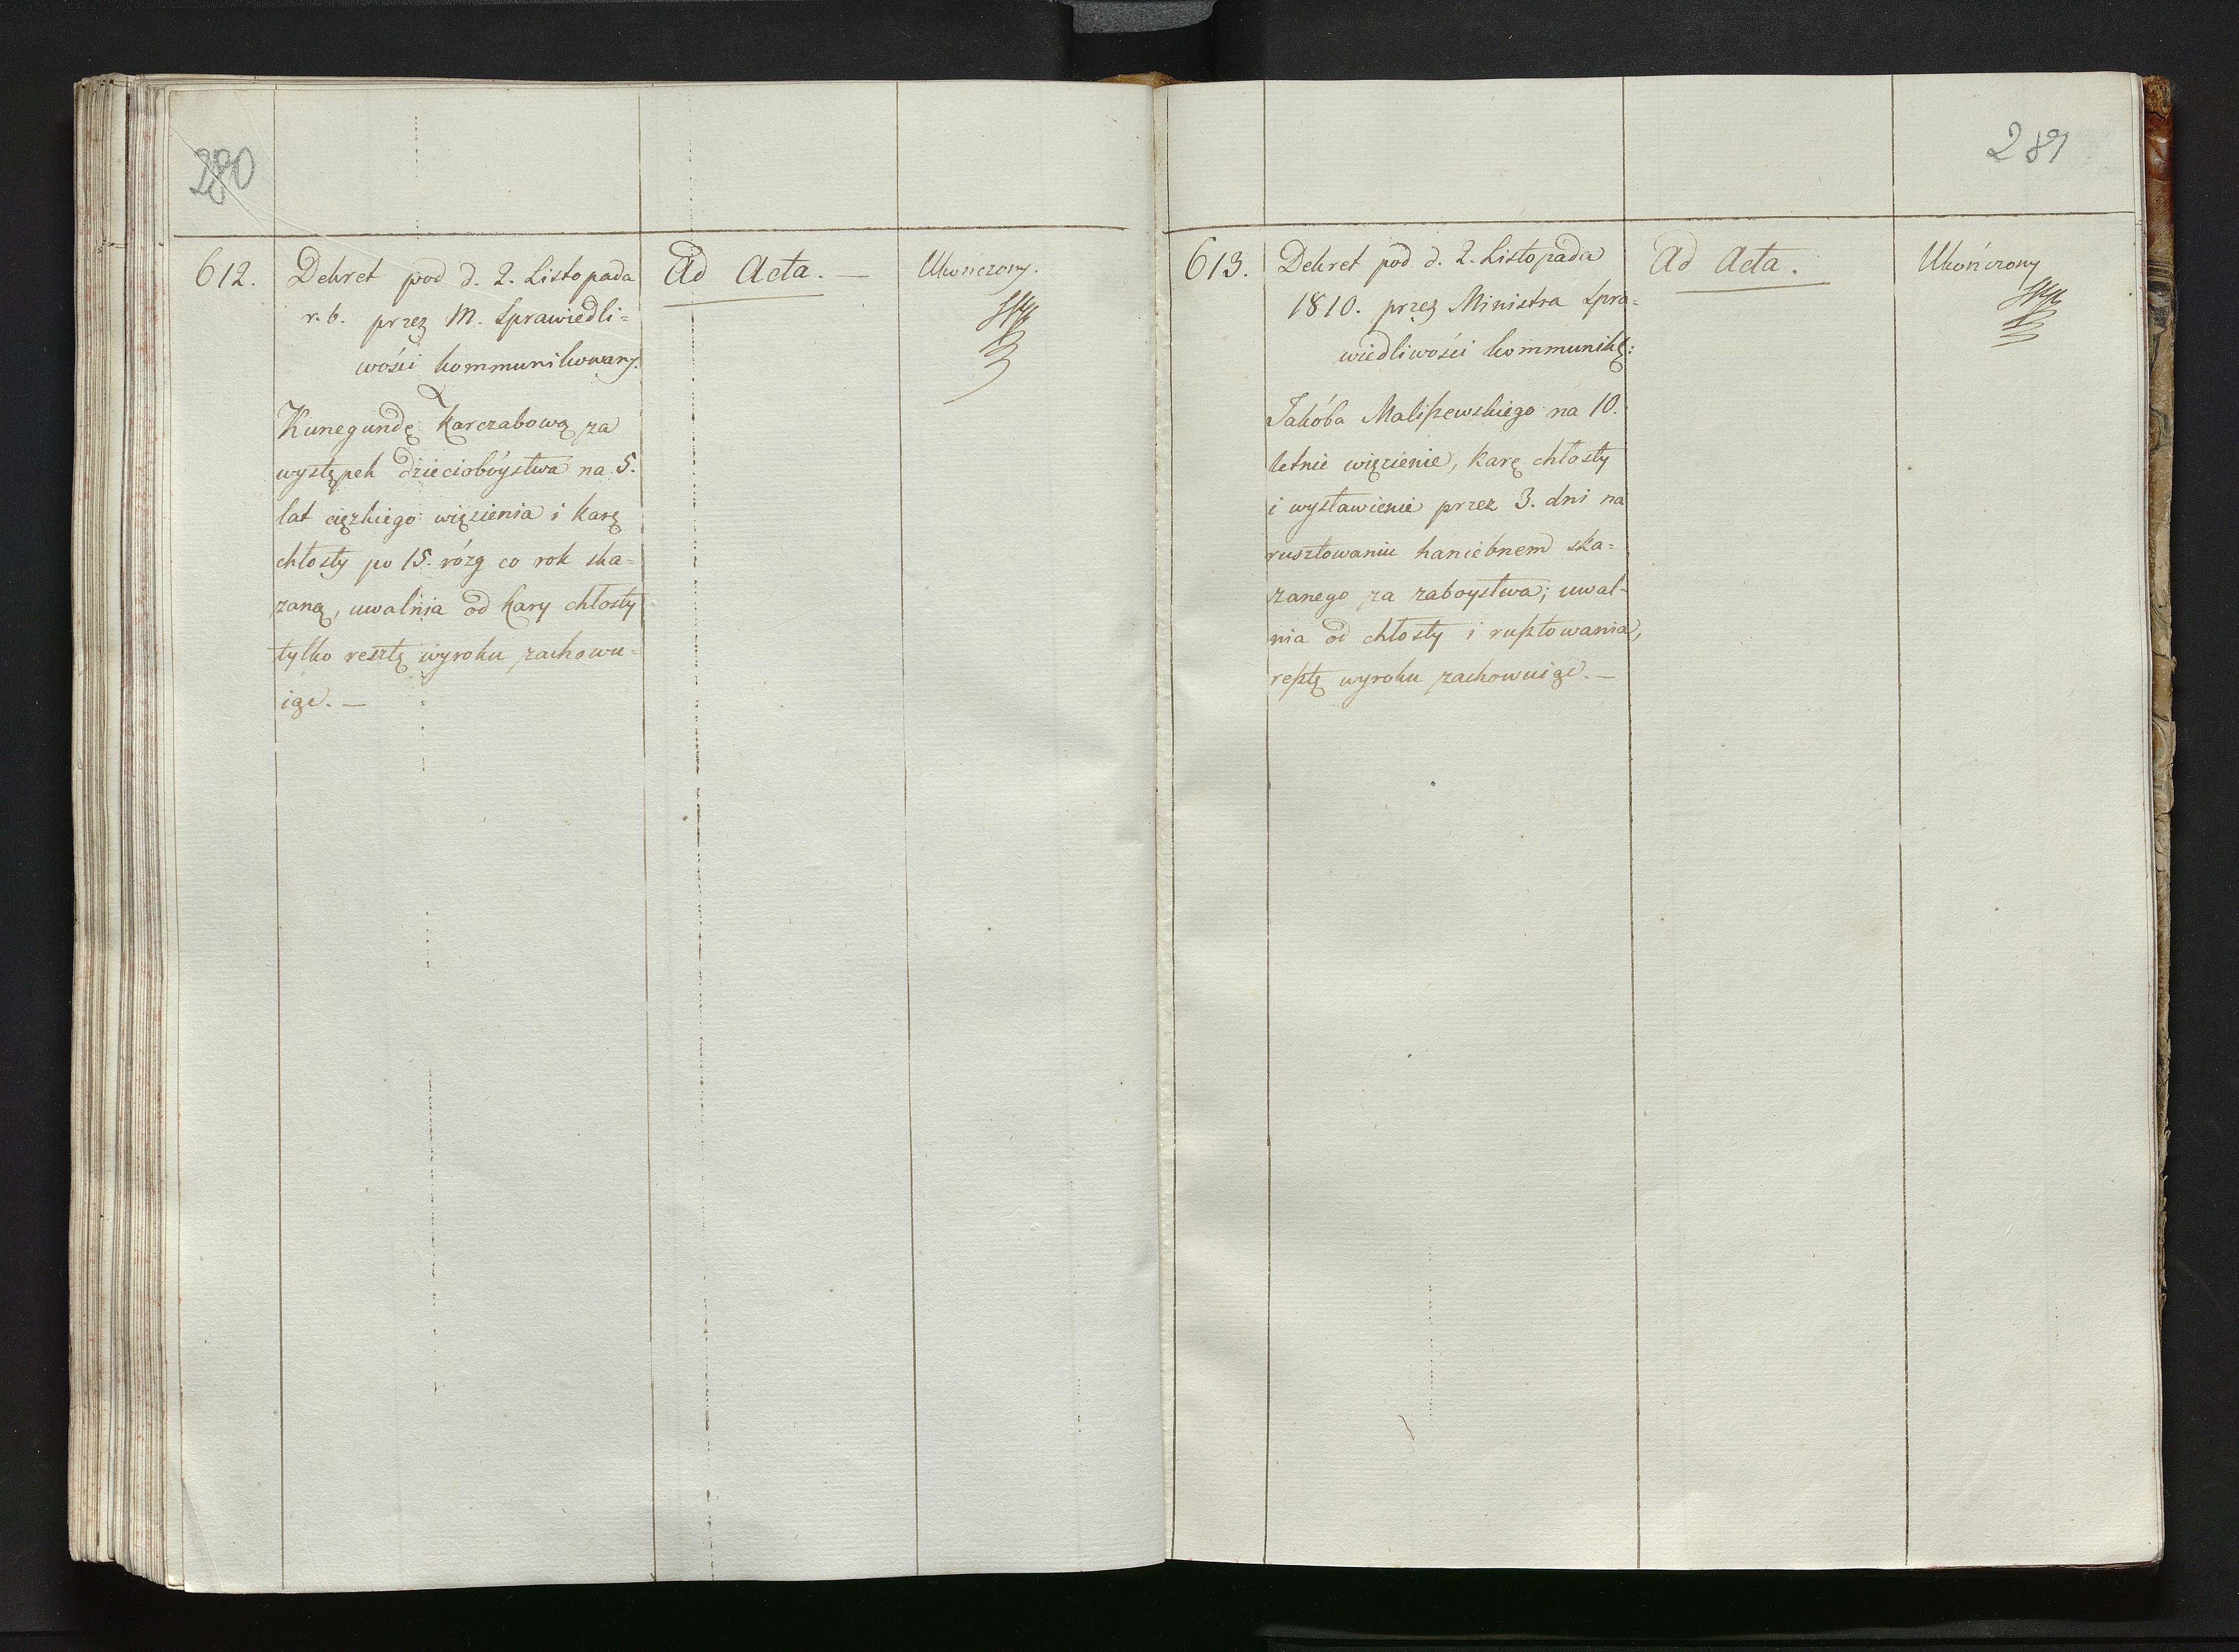 280
612.
Dekret pod d. 2. Listopada
r. b. przez M. Sprawiedli=
wości kommunikowany.
Kunegundę Karczabową za
występek dzieciobóystwa na 5.
lat cięzkiego więzienia i karę
chłosty po 15. rózg co rok ska=
zaną, uwalnia od kary chłosty
tylko resztę wyroku zachowu=
iąc. —
Ad Acta. —
Ukonczony.
281
613.
Dekret pod d. 2. Listopada
1810. przez Ministra Spra=
wiedliwości kommunikę:
Jakóba Maliszewskiego na 10.
letnie więzienie, karę chłosty
i wystawienie przez 3. dni na
rusztowaniu haniebnem ska=
zanego za zaboystwa; uwal=
nia od chłosty i rusztowania,
resztę wyroku zachowuiąc. —
Ad Acta.
Ukończony